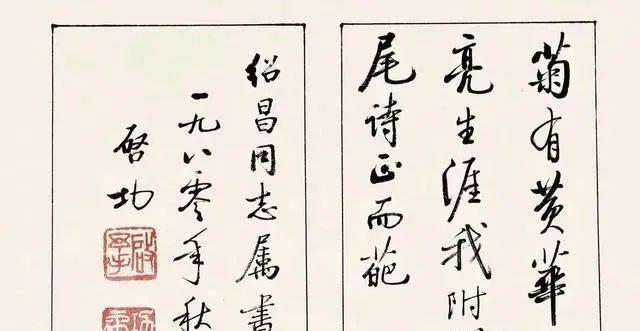 菊有黄華
亮生涯我附
尾诗正而葩
绍昌同志属书
一九八零年秋
启功